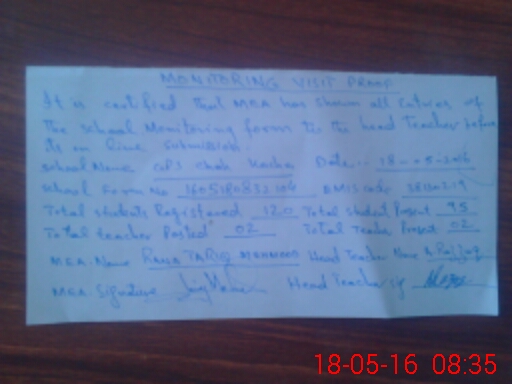 MONITORING VISIT PROOF
It is certified that MEA has shown all entries of
the school Monitoring form to the head Teacher before
its on line submission.
School Name GPS Chak Kacha Date:- 18-05-2016
School Form No EMIS code
Total students Registered 120 Total student Present 95
Total teacher Posted 02 Total Teacher Present 02
MEA. Name RANA TARIQ MEHMOOD Head Teacher Name
MEA. Signature Head Teacher
18-05-16 08:35